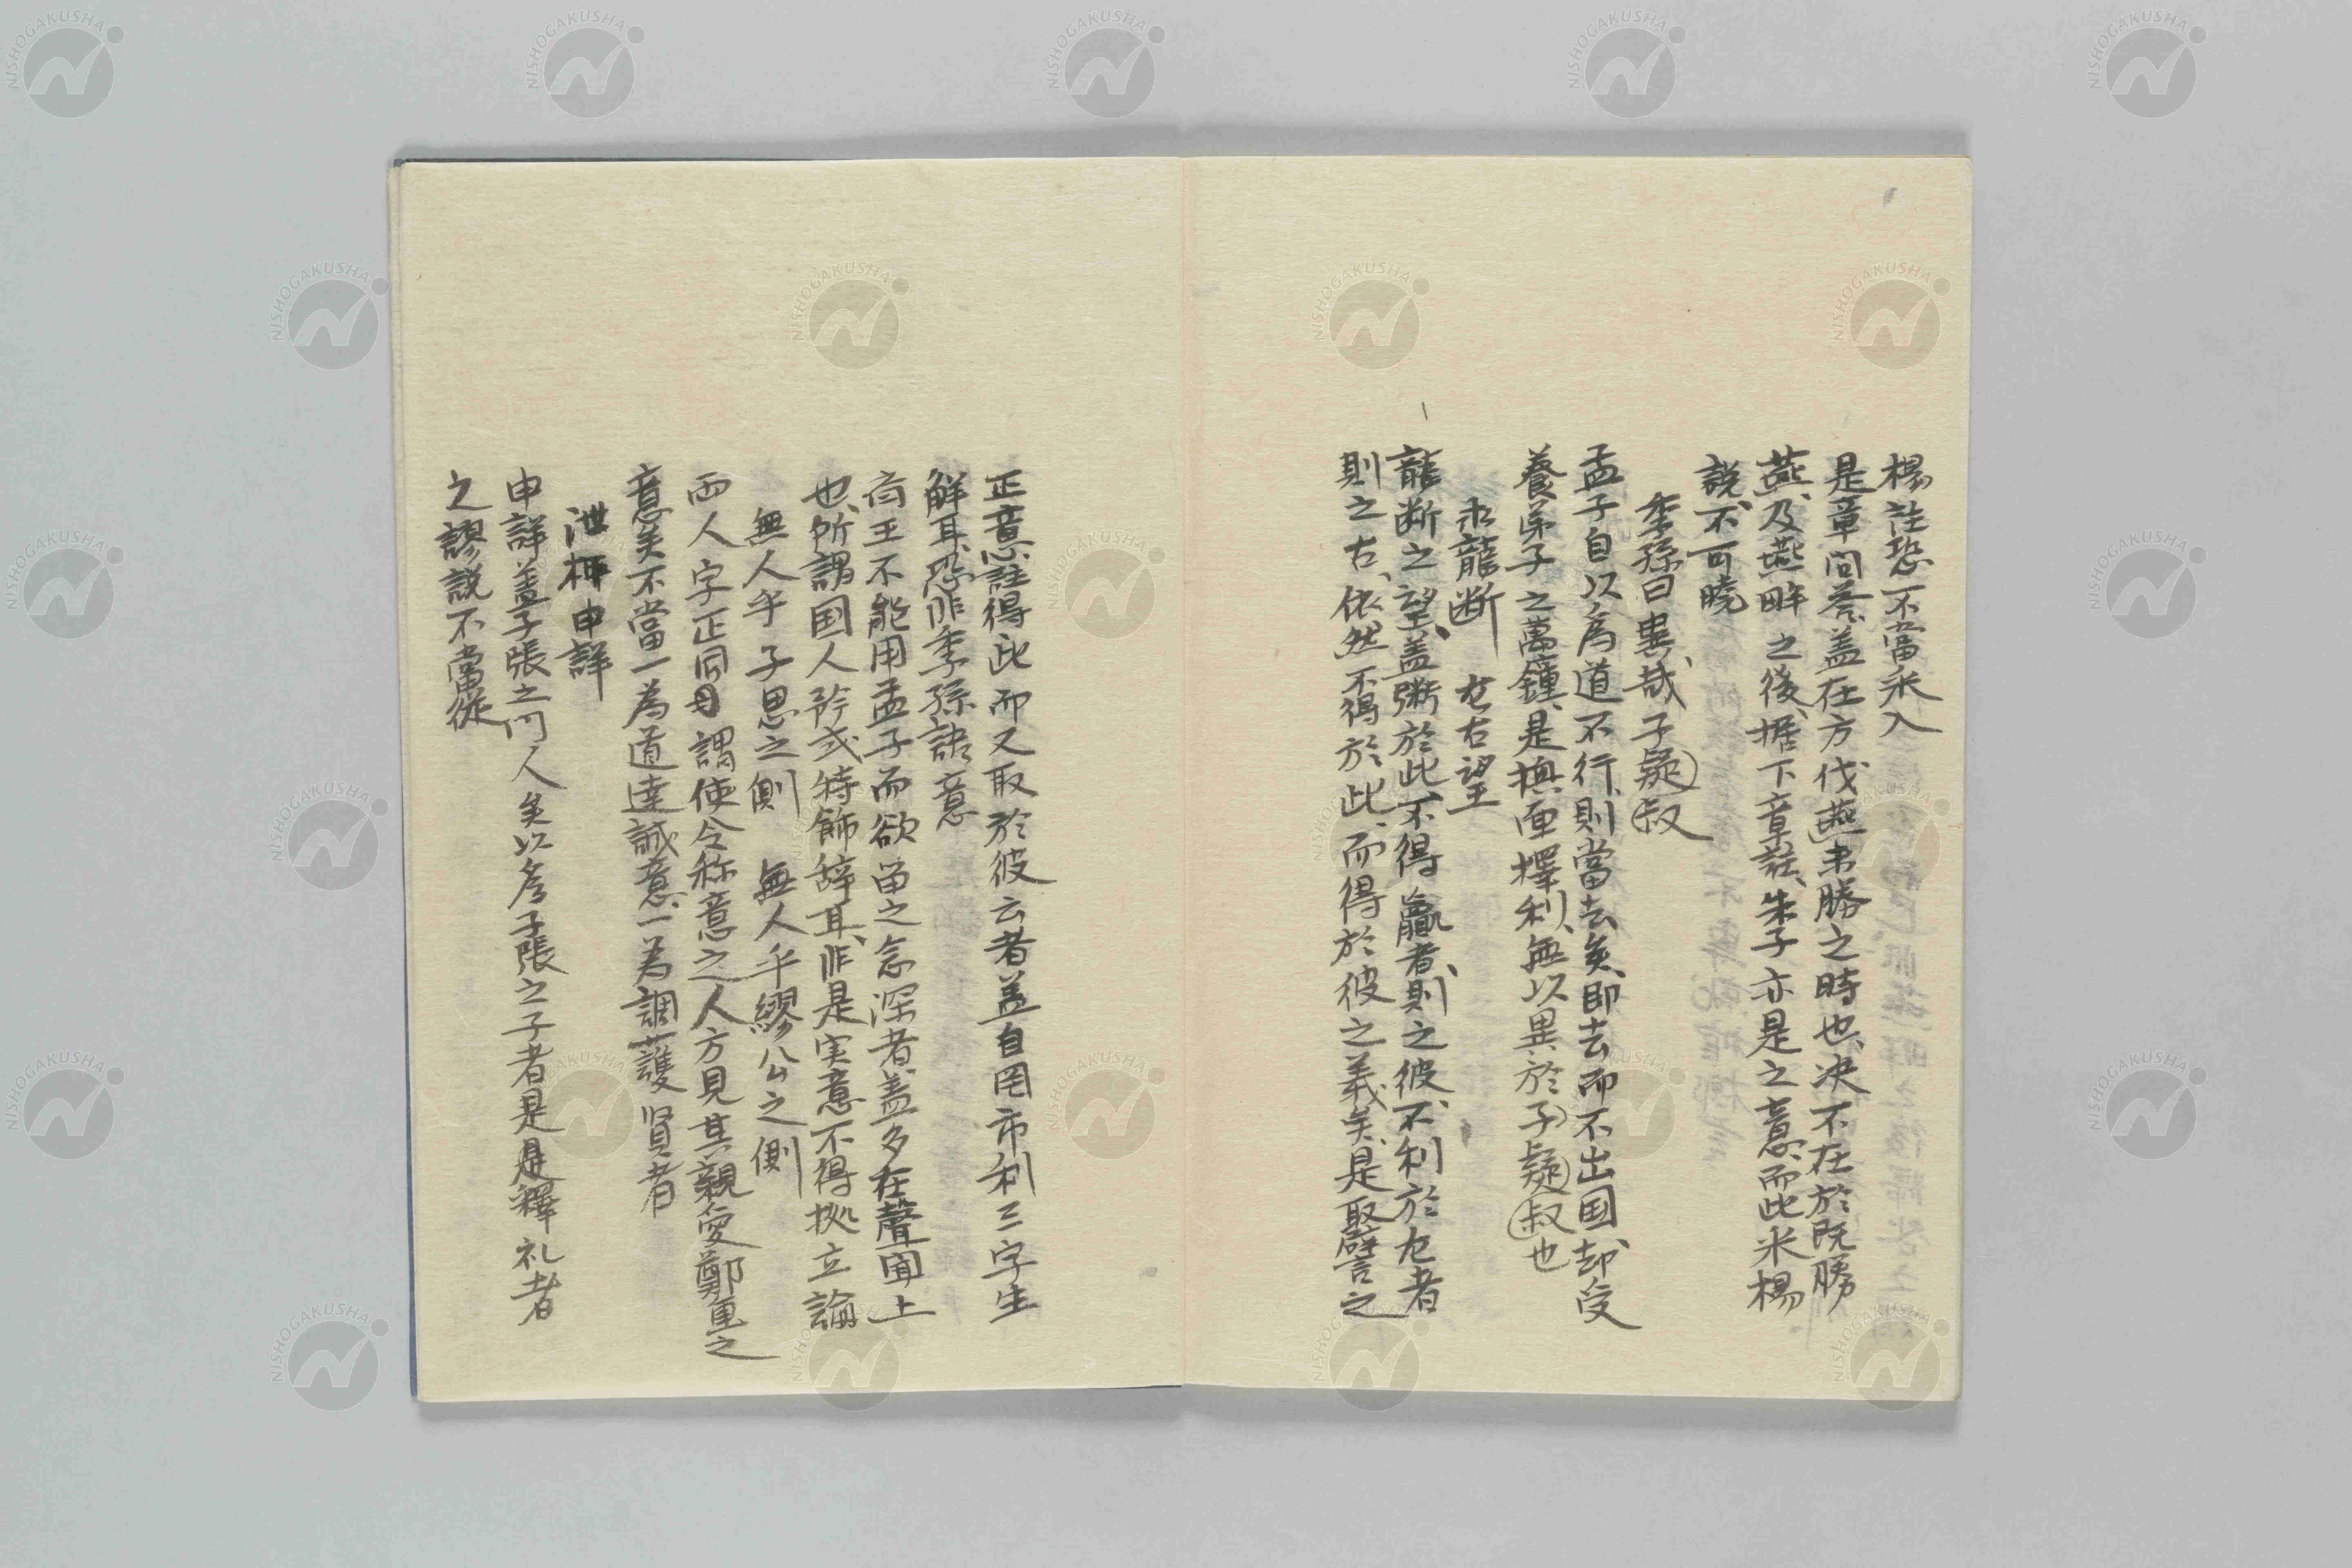 楊註恐不當采入
是章問荅、盖在方伐燕未勝之時也、决不在於既勝
燕、及燕畔之後、据下章註、朱子亦是之意、而此采楊
說、不可曉
季孫曰異哉、子疑叔
孟子自以為道不行、則當去矣、即去而不出国、却受
養弟子之萬鐘、是揀而擇利、無以異於子疑叔也
求龍断 左右望
龍断之望、盖鬻於此、不得贏者、則之彼、不利於左者
則之右、依然不得於此、而得於彼之義矣、是取譬之
正意、註得此而又取於彼云者、盖自罔市利三字生
解耳、恐非季孫語意
斉王不能用孟子而欲留之念深者、盖多在聲聞上
也、所謂国人矜式特飾辞耳、非是実意、不得拠立論
無人乎子思之側 無人乎繆公之側
両人字正同、毋謂使令称意之人方見其親愛鄭重之
意矣、不當一為道達誠意、一為調護賢者
泄柳申詳
申詳盖子張之門人矣、以為子張之子者是是釋礼者
之謬說不當從